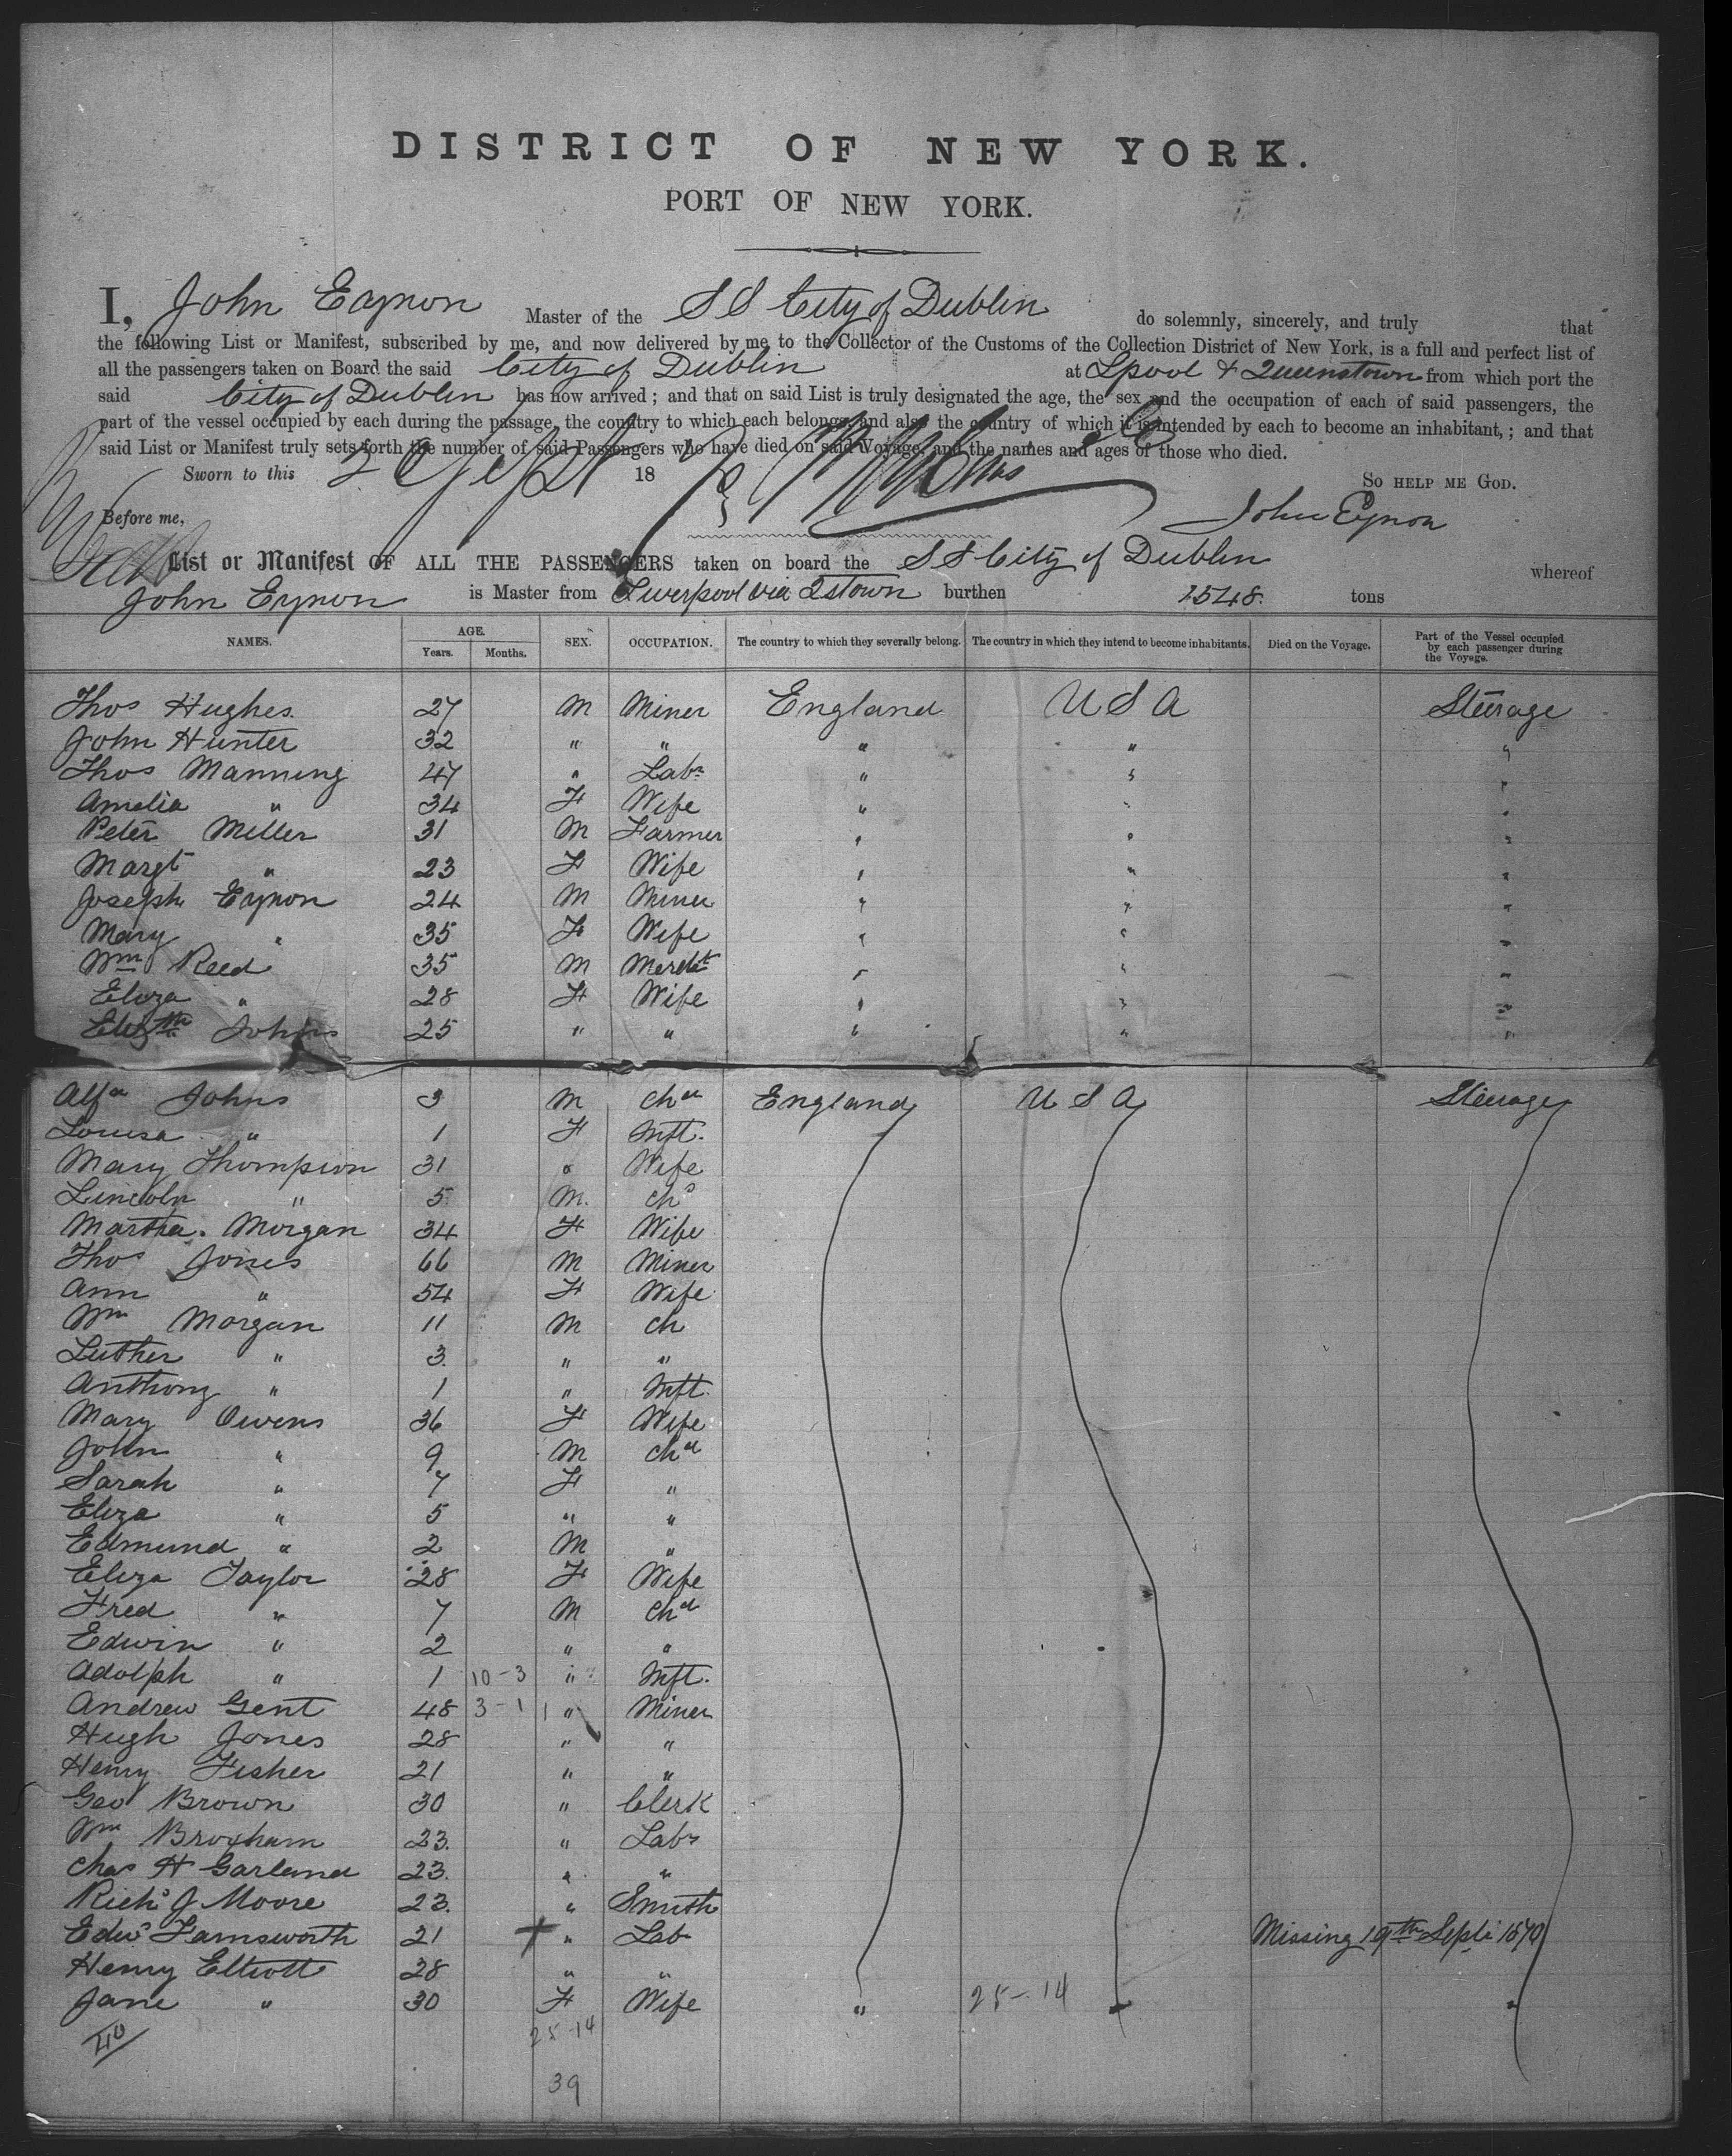 DISTRICT OF NEW YORK.
PORT OF NEW YORK.
I, John Eynon Master of the S S City of Dublin do solemnly, sincerely, and truly that
the following List or Manifest, subscribed by me, and now delivered by me to the Collector of the Customs of the Collection District of New York, is a full and perfect list of
all the passengers taken on Board the said City of Dublin at Lpool & Queenstown from which port the
said City of Dublin has now arrived ; and that on said List is truly designated the age, the sex and the occupation of each of said passengers, the
part of the vessel occupied by each during the passage, the country to which each belongs, and also the country of which it is intended by each to become an inhabitant, ; and that
said List or Manifest truly sets forth the number of said Passengers who have died on said Voyage, and the names and ages of those who died.
Sworn to this Sept 18 70 So help me God.
Before me, John Eynon
List or Manifest OF ALL THE PASSENGERS taken on board the S S City of Dublin whereof
John Eynon is Master from Liverpool via Qstown burthen 1548 tons
NAMES. AGE. Years. Months. SEX. OCCUPATION. The country to which they severally belong. The country in which they intend to become inhabitants. Died on the Voyage. Part of the Vessel occupied by each passenger during the Voyage.
Thos Hughes 27 M Miner England U S A Steerage
John Hunter 32 " " " " "
Thos Manning 47 " Labr " " "
Amelia " 34 F Wife " " "
Peter Miller 31 M Farmer " " "
Margt " 23 F Wife " " "
Joseph Eynon 24 M Miner " " "
Mary " 35 F Wife " " "
Wm Reed 35 M Mercht " " "
Eliza " 28 F Wife " " "
Elizth Johns 25 " " " " "
Alfd Johns 3 M chd England U S A Steerage
Louisa " 1 F Inft.
Mary Thompson 31 " Wife
Lincoln " 5 M. chd
Martha Morgan 34 F Wife
Thos Jones 66 M Miner
Ann " 54 F Wife
Wm Morgan 11 M ch
Luther " 3 " "
Anthony " 1 " Inft.
Mary Owens 36 F Wife
John " 9 M chd
Sarah " 7 F "
Eliza " 5 " "
Edmund " 2 M "
Eliza Taylor 28 F Wife
Fred " 7 M chd
Edwin " 2 " "
Adolph " 1 10-3 " Inft.
Andrew Gent 48 3-1 1 " Miner
Hugh Jones 28 " "
Henry Fisher 21 " "
Geo Brown 30 " Clerk
Wm Broxham 23. " Labr
Chas H Garland 23. " "
Richd J Moore 23. " Smith
Edwd Farnsworth 21 + " Lab Missing 19th Sept. 1870
Henry Elliott 28 " "
Jane " 30 F Wife " 25-14 " "
40 25-14
39